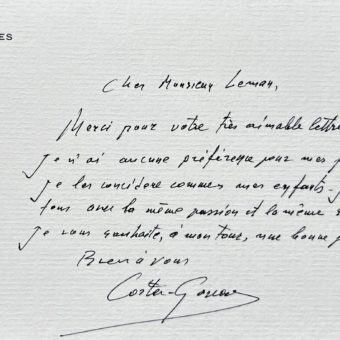 ES
Cher Monsieur Leman,
Merci pour votre très aimable lettre
Je n'ai aucune préférence pour mes
je les considere commes mes enfants.
tous avec la même passion et la même
Je vous souhaite, à mon tour, une bonne
Bien à vous
Costa-Gavras